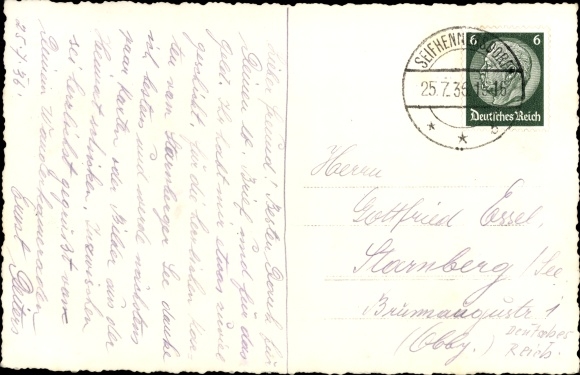 Lieber Freund! Besten Dank für
Deinen lb. Brief und für das
Geld. Du hast mir etwas zuviel
geschickt. Für die herrlichen Kar-
ten vom Starnberger See danke
ich bestens und werde nächstens
paar Karten oder Bilder aus der
Heimat schicken. Inzwischen
sei herzlichst gegrüßt von
Deinem Wanderkameraden
25.7.36. Ernst
SEIFHENNERSDORF
25.7.36
6 6
Deutsches Reich
Herrn
Gottfried Essel.
Starnberg / See
1
(Obby.) Deutsches
Reich.